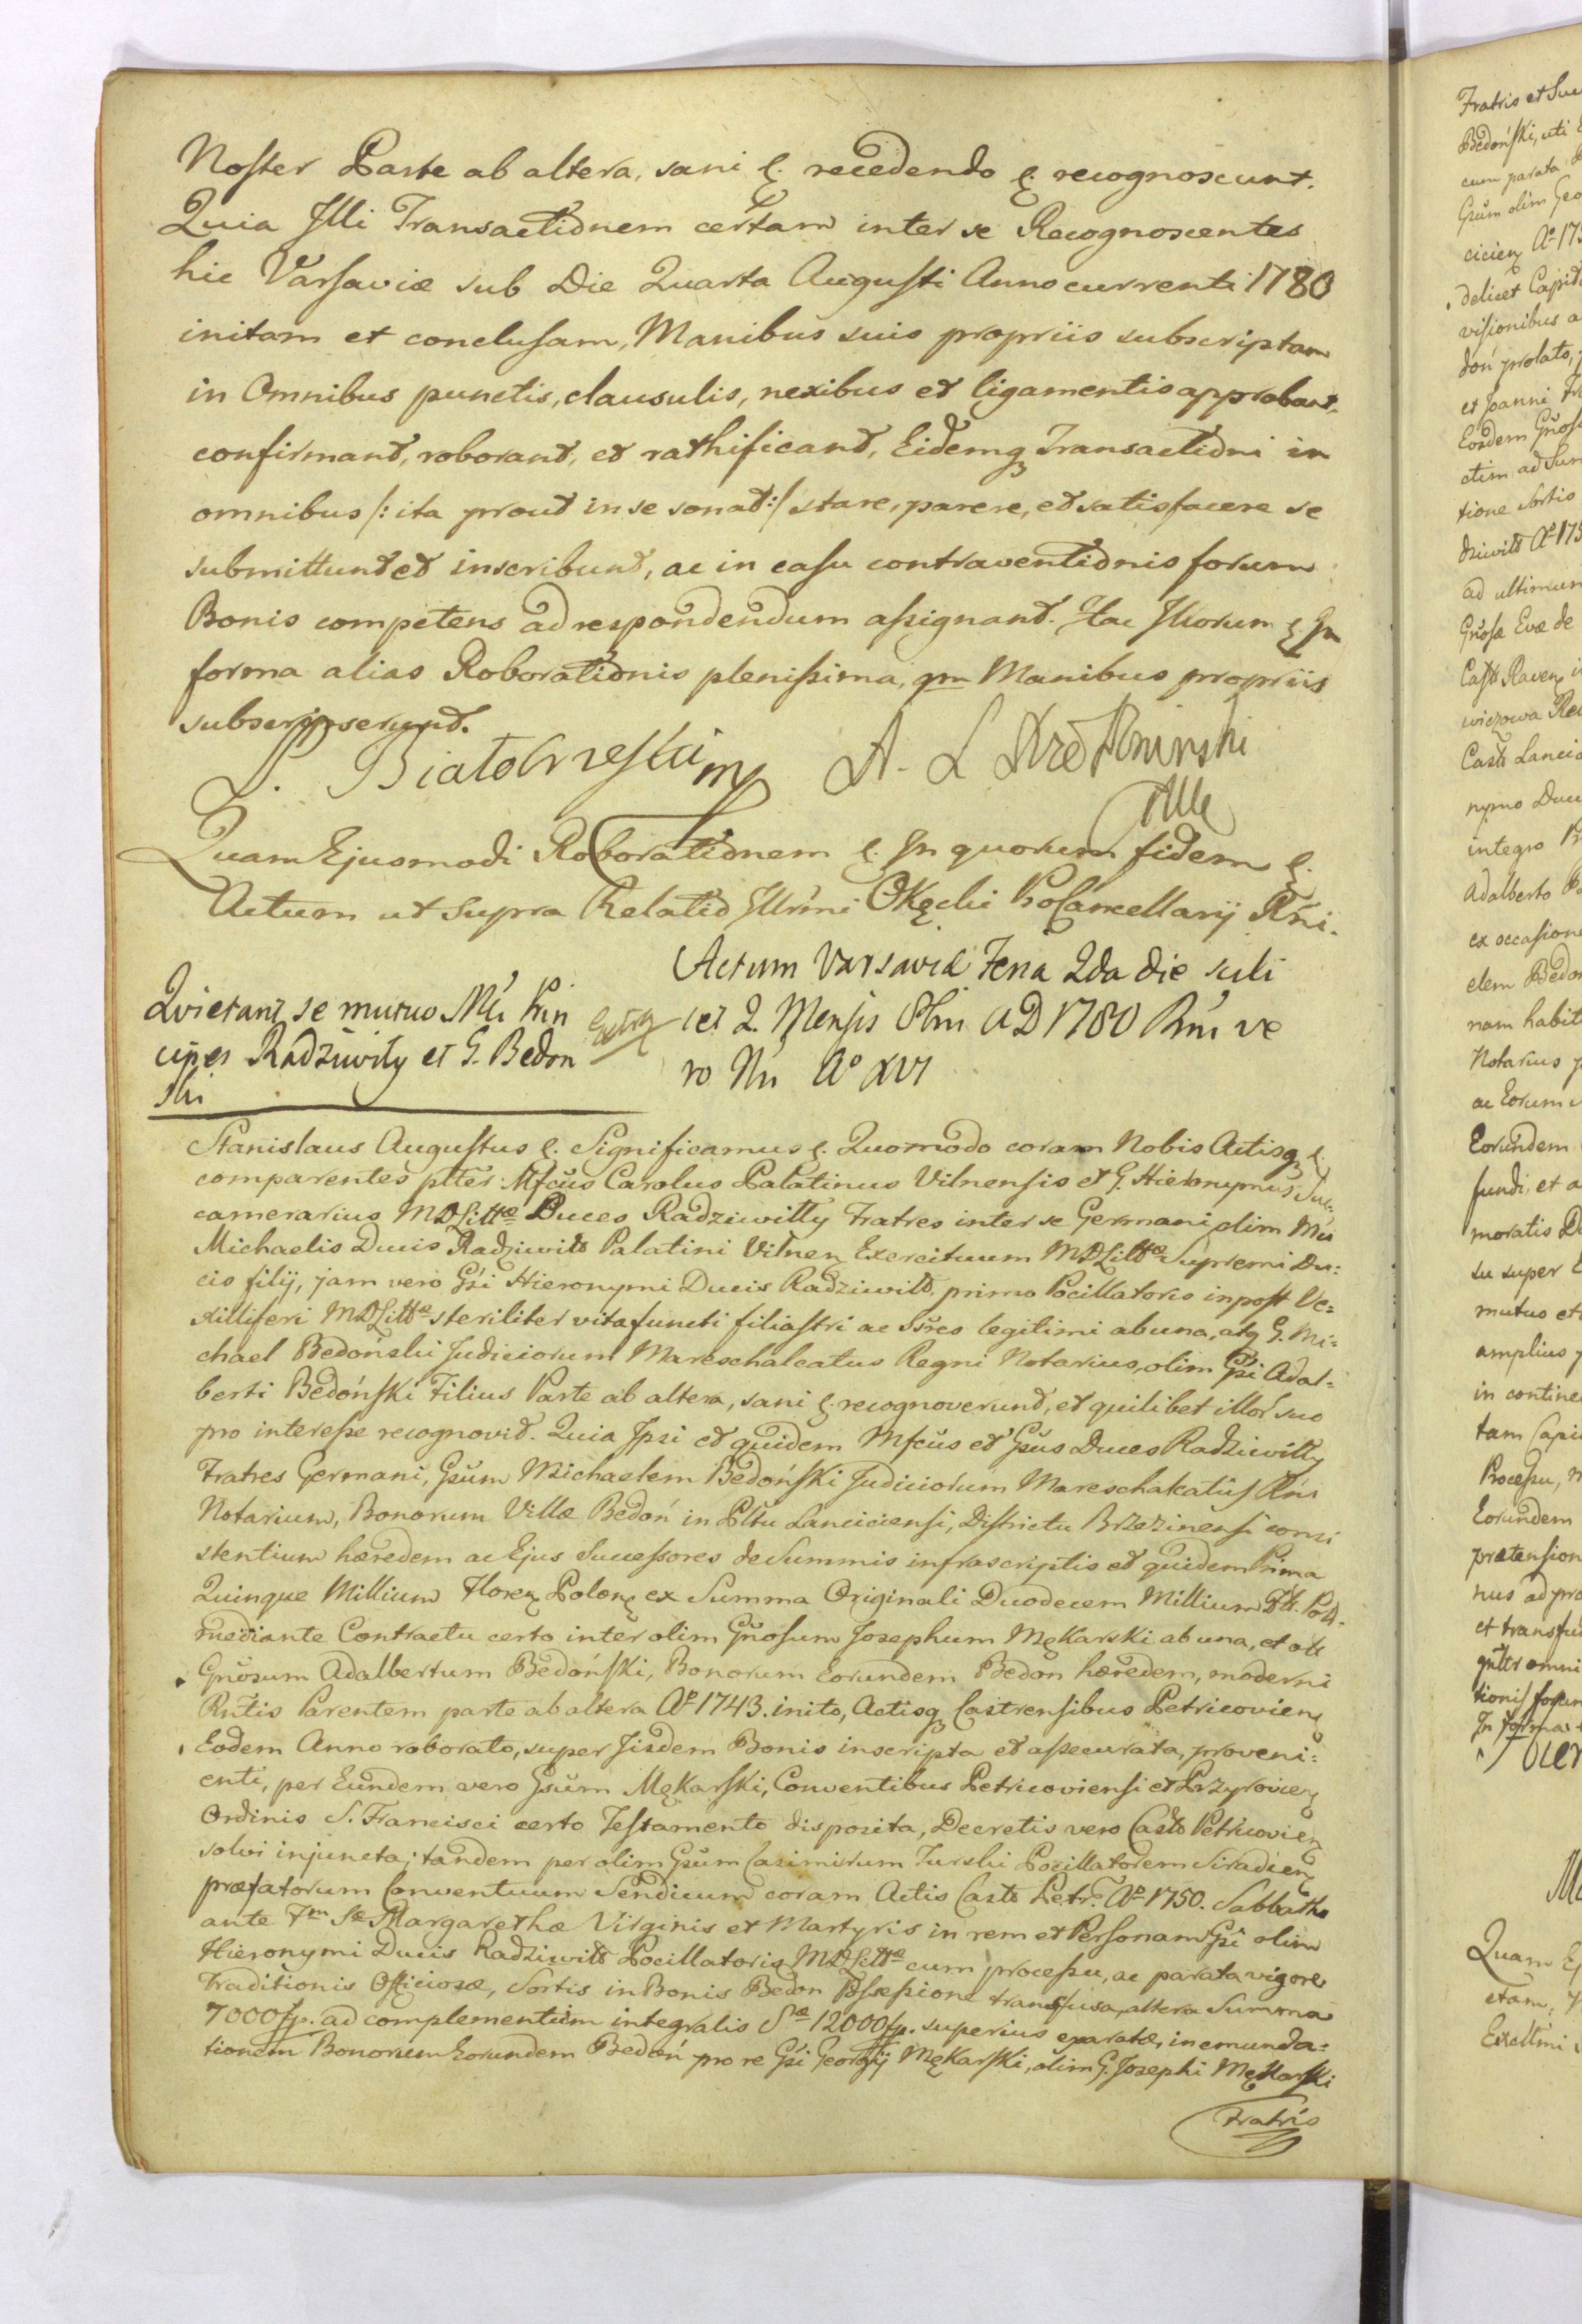 Noster Parte ab altera, sani &. recedendo &. recognoscunt.
Quia Illi Transactionem certam inter se Recognoscentes
hic Varsaviæ sub Die Quarta Augusti Anno currenti 1780
initam et conclusam, Manibus suis propriis subscriptam
in Omnibus punctis, clausulis, nexibus et ligamentis approbant,
confirmant, roborant, et rathificant, Eidemq Transactioni in
omnibus /: ita prout in se sonat :/ stare, parere, et satisfacere se
submittunt et inscribunt, ac in casu contraventionis forum
Bonis competens ad respondendum assignant. Hac Illorum & In
forma alias Roborationis plenissima, qm Manibus propriis
subscripserunt.
P. Białobrzeski mp A. L
Quam Ejusmodi Roborationem &. In quorum fidem &.
Actum ut supra Relatio Illrmi Okęcki ProCancellarij Rni.
Actum Varsaviæ Feria 2da die scili
Qvietant se mutuo Mci Prin cet 2. Mensis 8bri AD 1780 Rni ve
cipes Radziwiły et G. Bedoń ro Nri Ao XVI
ski
Extra
Stanislaus Augustus &. Significamus &. Quomodo coram Nobis Actisq &.
comparentes pltter Mfcus Carolus Palatinus Vilnensis et G. Hieronymus Suc:
camerarius MDLittæ Duces Radziwiłły Fratres inter se Germani olim Mci
Michaelis Ducis Radziwiłł Palatini Vilnen Exercituum MDLittæ Supremi Du:
cis filij, jam vero Gsi Hieronymi Ducis Radziwiłł, primo Pocillatoris in post Ve:
xilliferi MDLittæ steriliter vita functi filiastri ac ssres legitimi ab una, atq G. Mi:
chael Bedoński Judiciorum Mareschalcatus Regni Notarius, olim Gsi Adal:
berti Bedoński Filius Parte ab altera, sani &. recognoverunt, et quilibet illor suo
pro interesse recognovit. Quia Ipsi et quidem Mfcus et Gsus Duces Radziwiłły
Fratres Germani, Gsum Michaelem Bedoński Judiciorum Mareschalcatus Rni
Notarium, Bonorum Villæ Bedoń in Pltu Lanciciensi, Districtu Brzezinensi consi
stentium hæredem ac Ejus Successores de Summis infrascriptis et quidem Prima
Quinque Millium Floren Polon ex Summa Originali Duodecem Millium Fl. Pol.
mediante Contractu certo inter olim Gnosum Josephum Mękarski ab una, et
Gnosum Adalbertum Bedoński, Bonorum Eorundem Bedoń hæredem, moderni
Rntis Parentem parte ab altera Ao 1743. inito, Actisq Castrensibus Petricovien
Eodem Anno roborato, super Iisdem Bonis inscripta et assecurata, proveni:
enti, per Eundem vero Gsum Mękarski, Conventibus Petricoviensi et Przyrovien
Ordinis S. Francisci certo Testamento disposita, Decretis vero Castr Petricovien
solvi injuncta; tandem per olim Gsum Casimirum Turski Pocillatorem Siradien
præfatorum Conventuum Sendicum coram Actis Castr Petr. Ao 1750. Sabbatho
ante Fm Sæ Margarethæ Virginis et Martyris in rem et Personam Gsi olim
Hieronymi Ducis Radziwiłł Pocillatoris MDLittæ cum processu, ac parata vigore
Traditionis Officiosæ, Sortis in Bonis Bedoń Possessione transfusa, altera Summa
7000 fp. ad complementum integralis Sæ 12000 fp. superius exaratæ, in emunda:
tionem Bonorum Eorundem Bedoń pro re Gsi Georgij Mękarski, olim G. Josephi Mękarski
Fratris